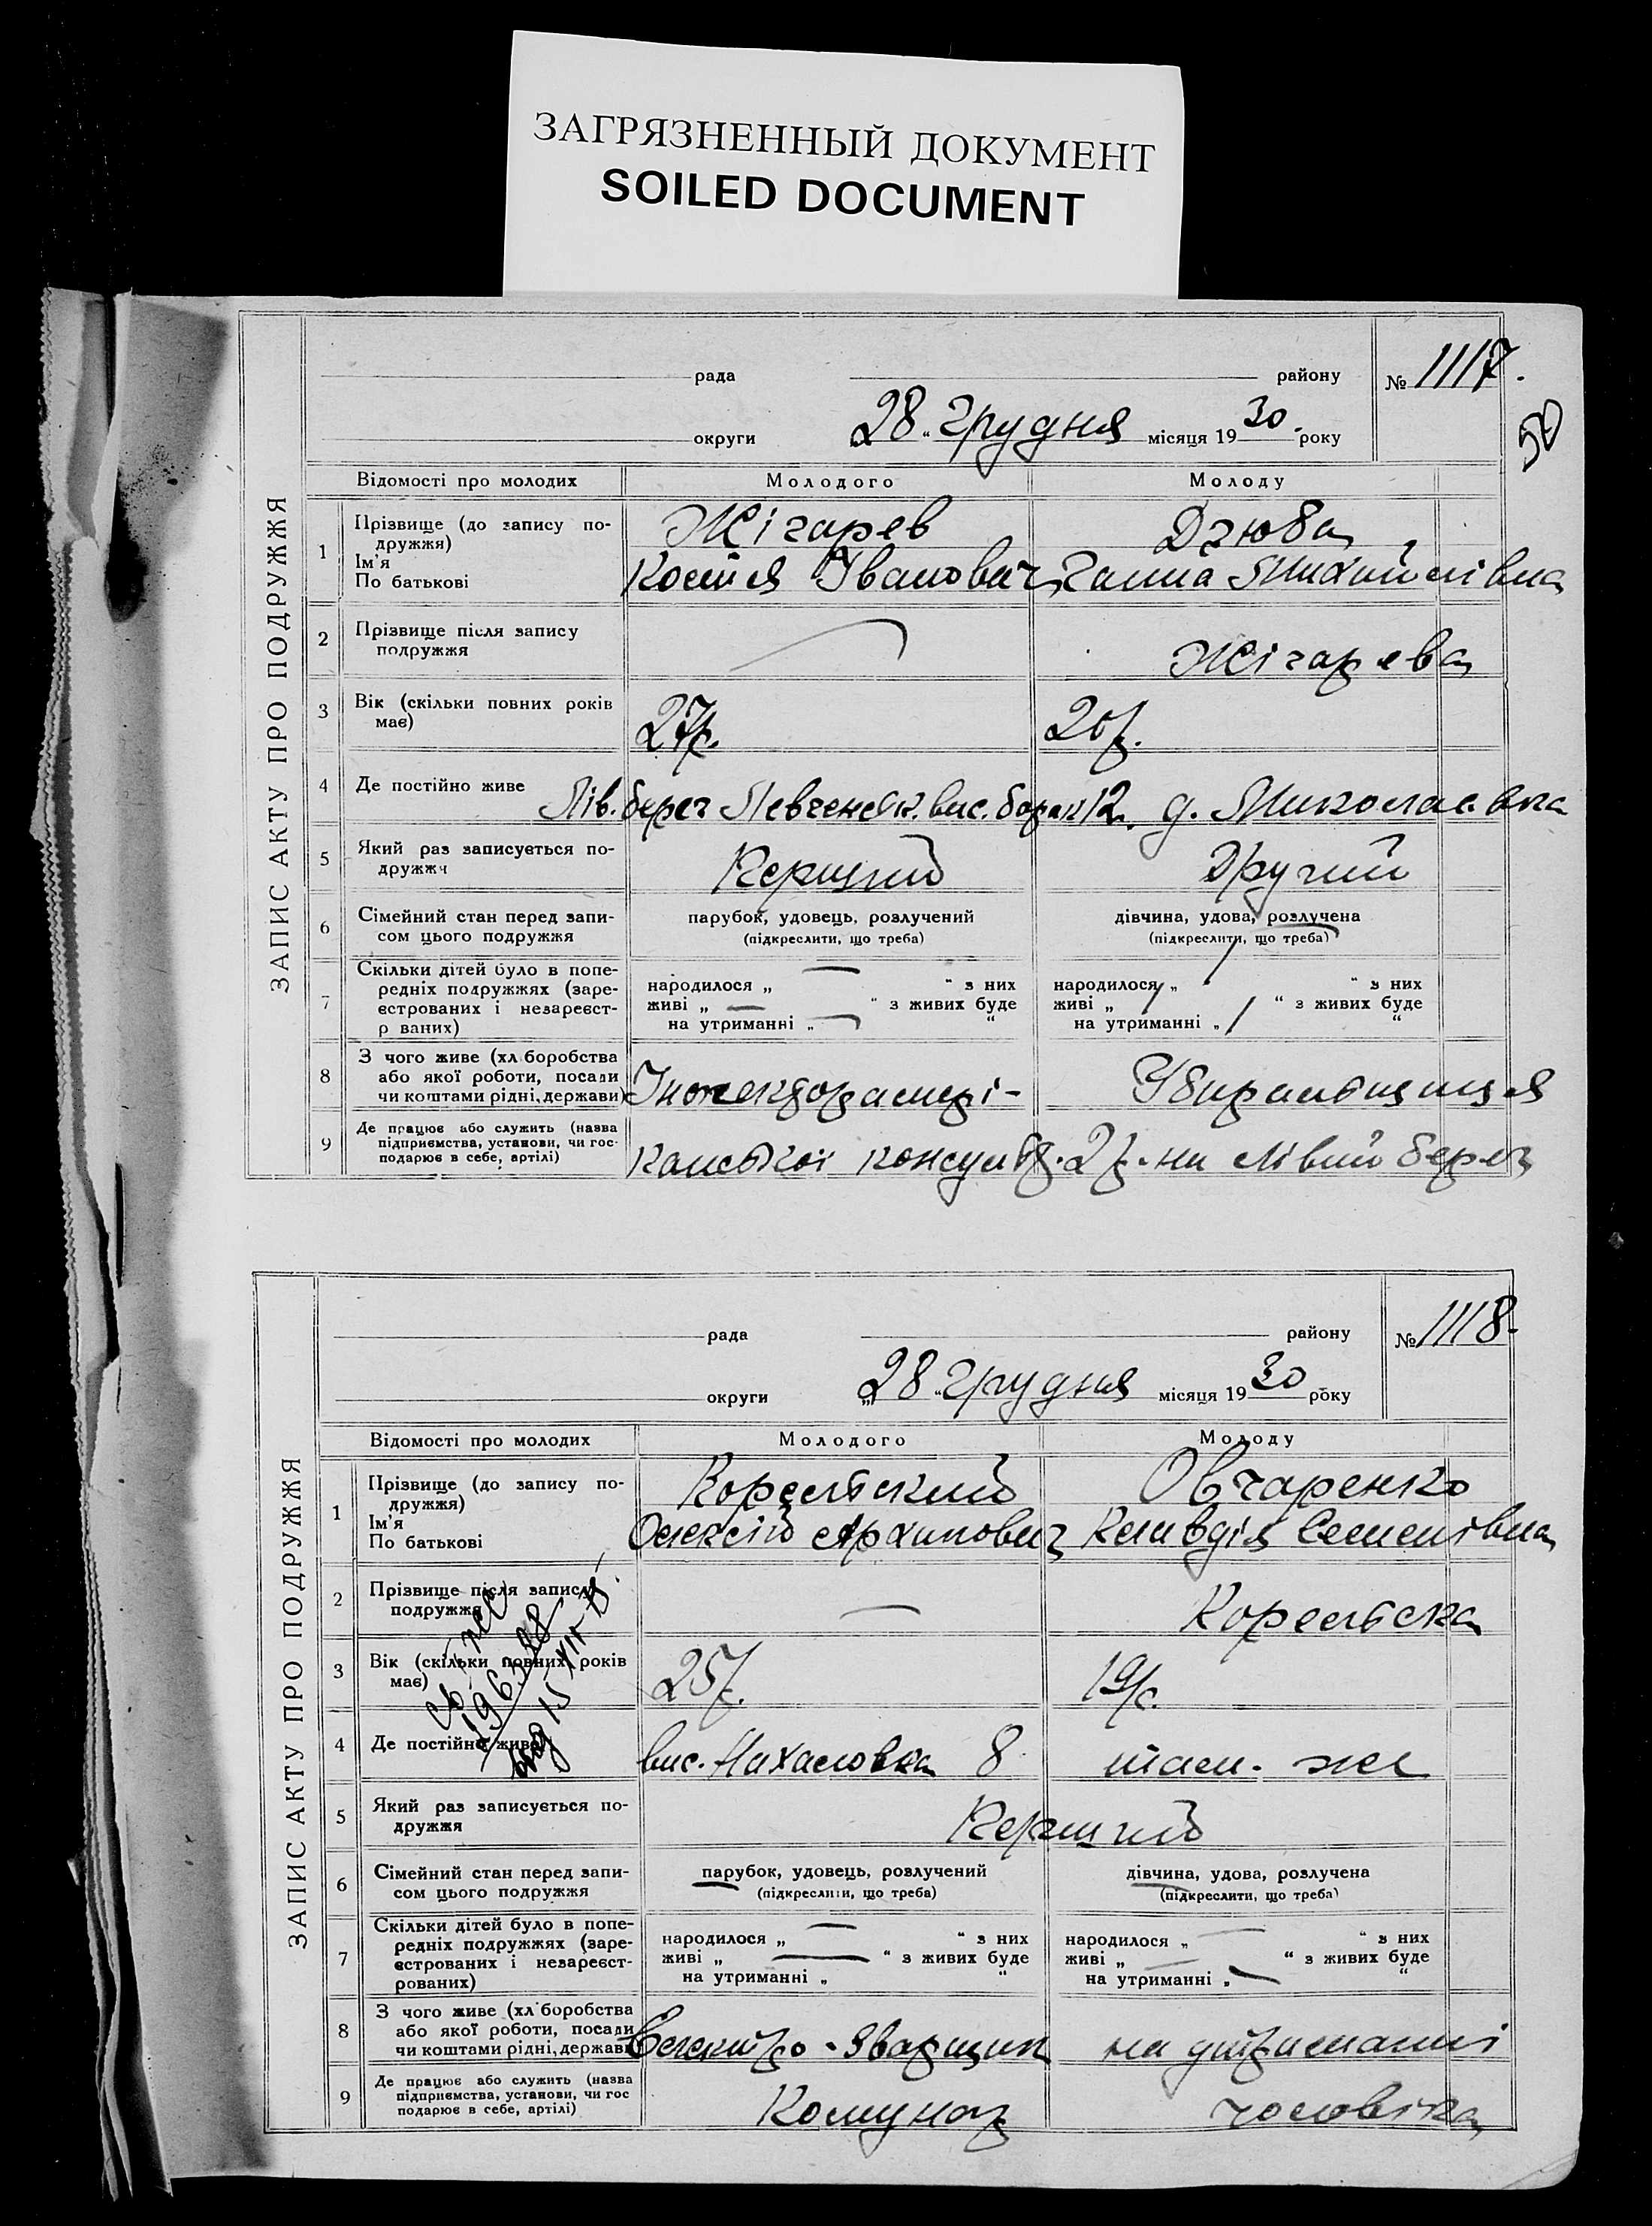 ЗАГРЯЗНЕННЫЙ ДОКУМЕНТ
SOILED DOCUMENT
ЗАПИС АКТУ ПРО ПОДРУЖЖЯ
рада району № 1117.
50
округи 28 „ Грудня місяця 1930. року
Відомості про молодих Молодого Молоду
1 Прізвище (до запису по-
дружжя)
Ім'я
По батькові
Жігарев Дзюба
Костя Іванович Ганна Михайлівна
2 Прізвище після запису
подружжя
Жігарева
3 Вік (скільки повних років
має)
27р. 20р.
4 Де постійно живе Лів. берег вис. 12. д. Миколаевка
5 Який раз записується по-
дружжя
Перший Другий
6 Сімейний стан перед запи-
сом цього подружжя
парубок, удовець, розлучений дівчина, удова, розлучена
(підкреслити, що треба) (підкреслити, що треба)
7 Скільки дітей було в попе-
редніх подружжях (заре-
єстрованих і незареєст-
р ваних)
народилося „ — “ з них народилося „ “ з них
живі „ — “ з живих буде живі „ “ з живих буде
на утриманні „ — “ на утриманні „ “
8 З чого живе (хл боробства
або якої роботи, посади
чи коштами рідні, держави)
Убиральщиця
9 Де працює або служить (назва
підприємства, установи, чи гос-
подарює в себе, артілі)
на лівий берег
ЗАПИС АКТУ ПРО ПОДРУЖЖЯ
рада району № 1118.
округи „28 „ Грудня місяця 1930 року
Відомості про молодих Молодого Молоду
1 Прізвище (до запису по-
дружжя)
Ім'я
По батькові
Корельский Овчаренко
Олексій Архипович Клавдія Семенівна
2 Прізвище після запису
подружжя
— Корельска
3 Вік (скільки повних років
має)
25р. 19р.
4 Де постійно живе вис. Нахаловка 8 там-же
5 Який раз записується по-
дружжя
Перший
6 Сімейний стан перед запи-
сом цього подружжя
парубок, удовець, розлучений дівчина, удова, розлучена
(підкреслити, що треба) (підкреслити, що треба)
7 Скільки дітей було в попе-
редніх подружжях (заре-
єстрованих і незареєст-
рованих)
народилося „ — “ з них народилося „ — “ з них
живі „ — “ з живих буде живі „ — “ з живих буде
на утриманні „ “ на утриманні „ — “
8 З чого живе (хл боробства
або якої роботи, посади
чи коштами рідні, держави
Електро-Зварщик на утриманні
9 Де працює або служить (назва
підприємства, установи, чи гос
подарює в себе, артілі)
Комунар чоловіка